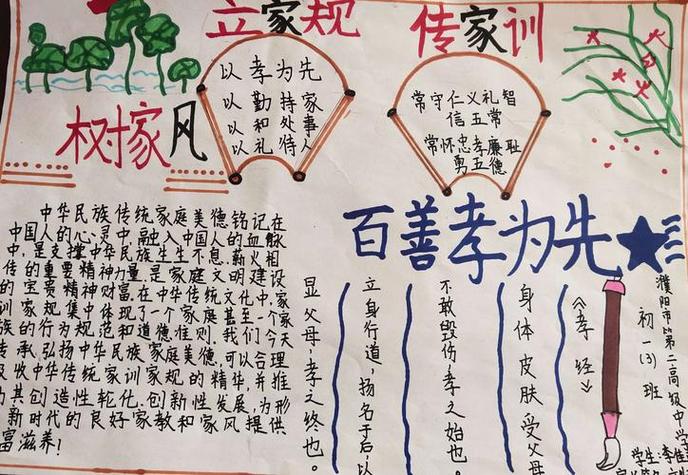 立家规
传家训
树家风
以孝为先
以勤持家
以和处事
以礼待人
常守仁义礼智
信五常
常怀忠孝廉耻
勇五德
百善孝为先
中华民族传统家庭美德铭记在
中国人的心灵中,融入中国人的血脉
中,是支撑中华民族生生不息,薪火相
传的重要精神力量,是家庭文明建设
的宝贵精神财富.在中华传统文化中,家
训家规集中体现了一个家庭甚至一个家
族的行为规范和道德准则.我们今天
传承,弘扬中华民族家庭美德,可以合理
吸收中华传统家训家规的精华,并推
其创造性轮化.创新性发展,为形
新时代的良好家教和家风提供
富滋养!
濮阳市第二高级中学
初一(3)班
学生:李佳
《孝经》
身体皮肤受父母
不敢毁伤,孝之始也。
立身行道,扬名于后以
显父母,孝之终也。